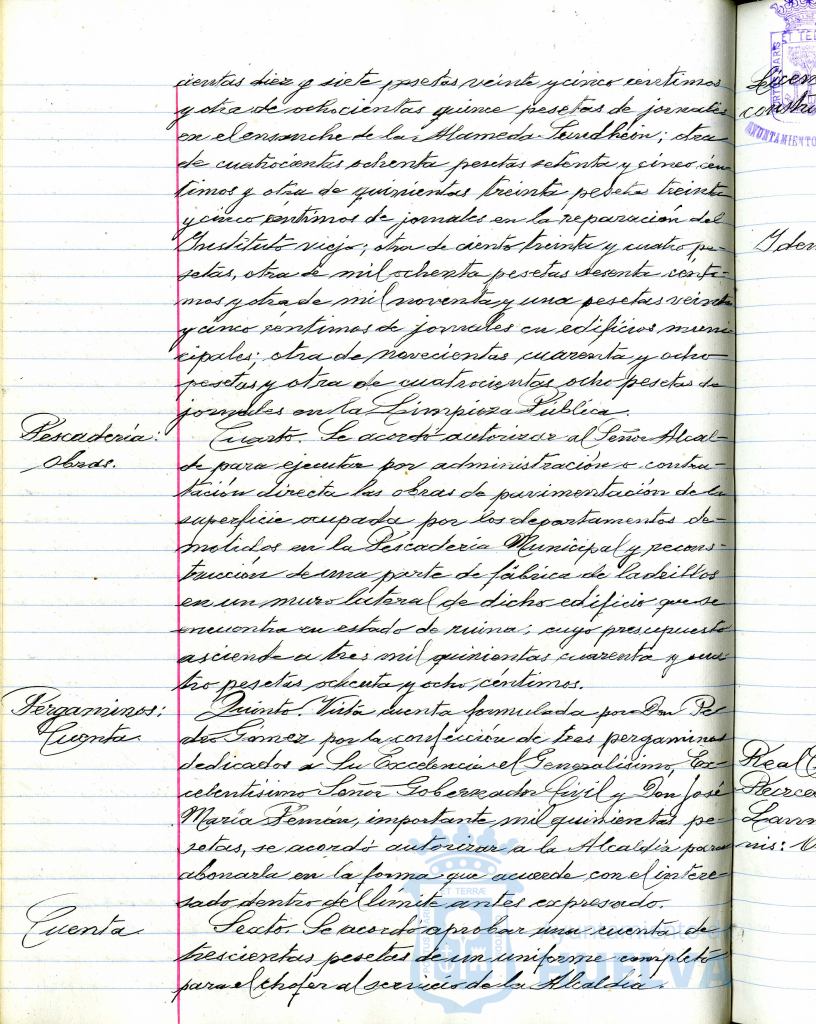 cientas diez y siete pesetas veinte y cinco céntimos
y otra de ochocientas quince pesetas de jornales
en el ensanche de la Alameda Sundhein; otra
de cuatrocientas ochenta pesetas setenta y cinco cén-
timos y otra de quinientas treinta pesetas treinta
y cinco céntimos de jornales en la reparación del
Instituto viejo; otra de ciento treinta y cuatro pe-
setas, otra de mil ochenta pesetas sesenta cénti-
mos y otra de mil noventa y una pesetas veinte
y cinco céntimos de jornales en edificios muni-
cipales; otra de novecientas cuarenta y ocho
pesetas y otra de cuatrocientas ocho pesetas de
jornales en la Limpieza Pública.
Pescadería:
obras.
Cuarto. Se acordó autorizar al Señor Alcal-
de para ejecutar por administración o contra-
tación directa las obras de pavimentación de la
superficie ocupada por los departamentos de-
molidos en la Pescadería Municipal y recons-
trucción de una parte de fábrica de ladrillos
en un muro lateral de dicho edificio que se
encuentra en estado de ruina; cuyo presupuesto
asciende a tres mil quinientas cuarenta y cua-
tro pesetas ochenta y ocho céntimos.
Pergaminos:
Cuenta.
Quinto. Vista cuenta formulada por Don Pe-
dro Gómez por la confección de tres pergaminos
dedicados a Su Excelencia el Generalísimo, Ex-
celentísimo Señor Gobernador Civil y Don José
María Pemán, importante mil quinientas pe-
setas, se acordó autorizar a la Alcaldía para
abonarla en la forma que acuerde con el intere-
sado dentro del límite antes expresado.
Cuenta
Sexto. Se acordó aprobar una cuenta de
trescientas pesetas de un uniforme completo
para el chofer al servicio de la Alcaldía.
Licen
constru
AYUNTAMIENTO
Idem
Real
Lann
nis:
Ayuntamiento de
HUELVA